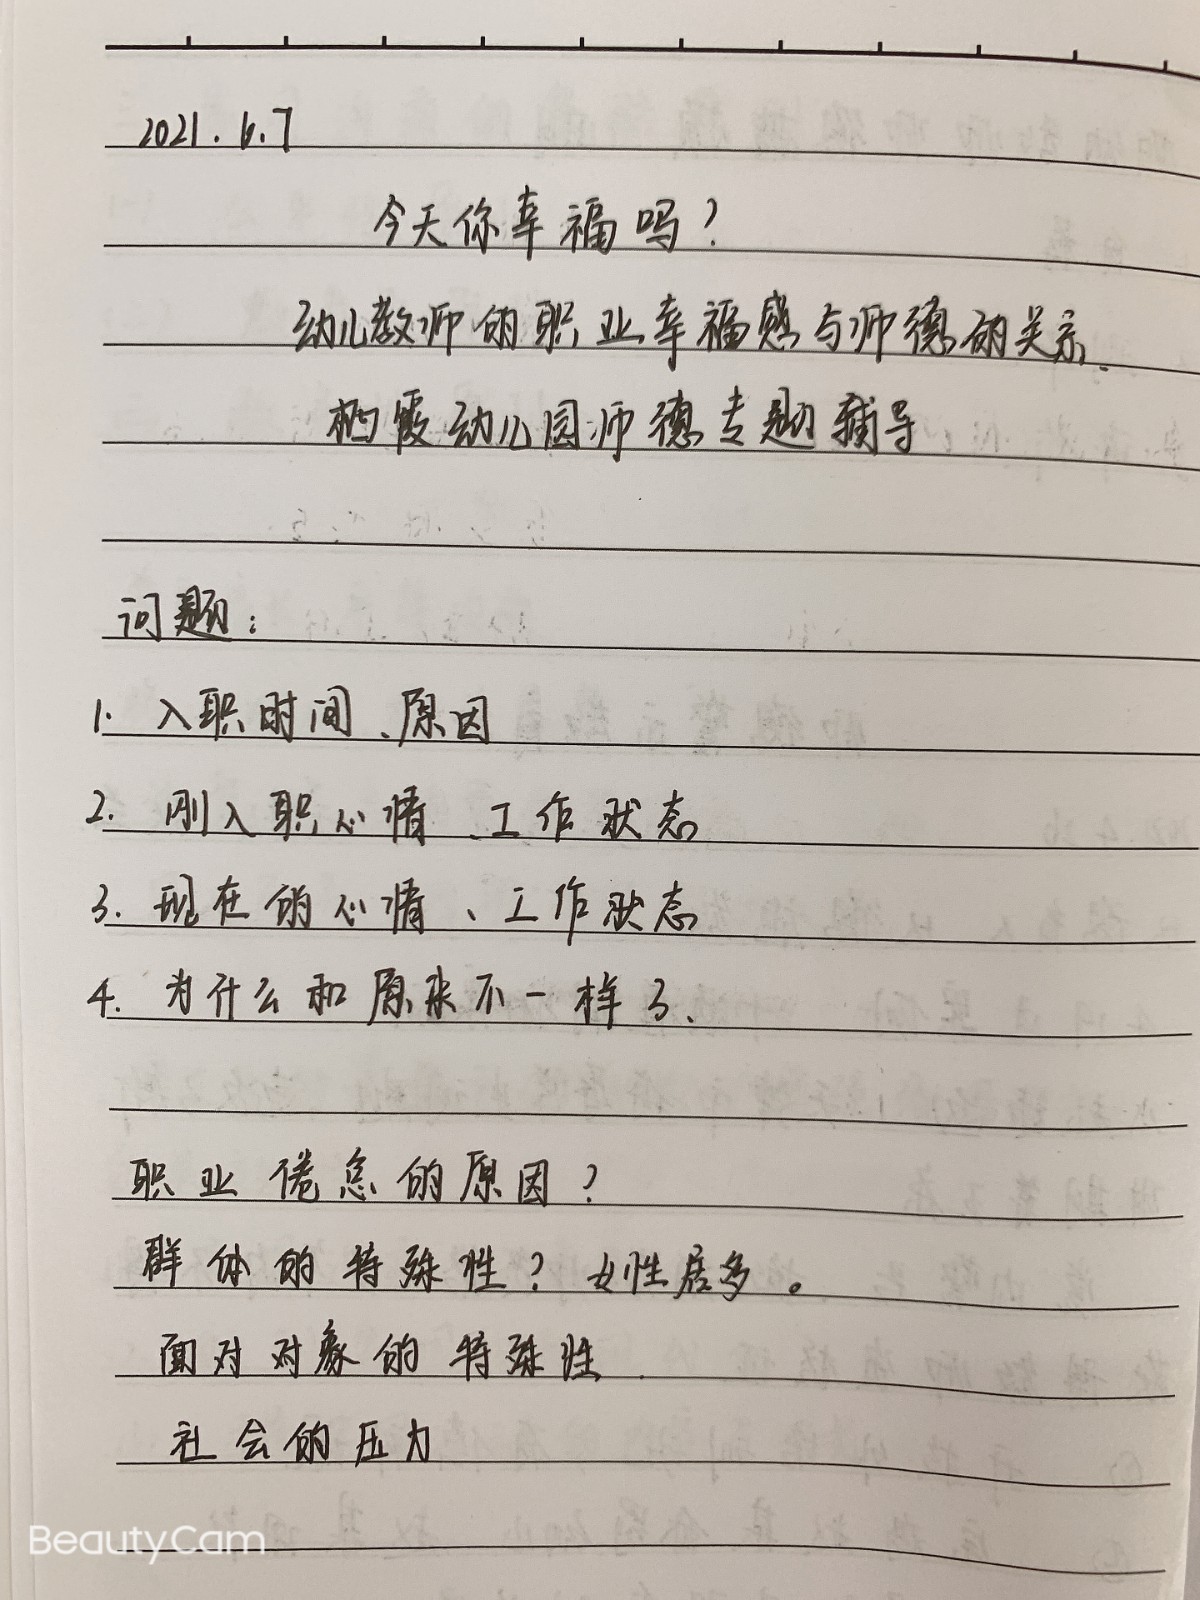 2021.6.7
今天你幸福吗？
幼儿教师的职业幸福感与师德的关系.
栖霞幼儿园师德专题辅导
问题：
1. 入职时间、原因
2. 刚入职心情、工作状态
3. 现在的心情、工作状态
4. 为什么和原来不一样了.
职业倦怠的原因？
群体的特殊性？女性居多。
面对对象的特殊性.
社会的压力
BeautyCam